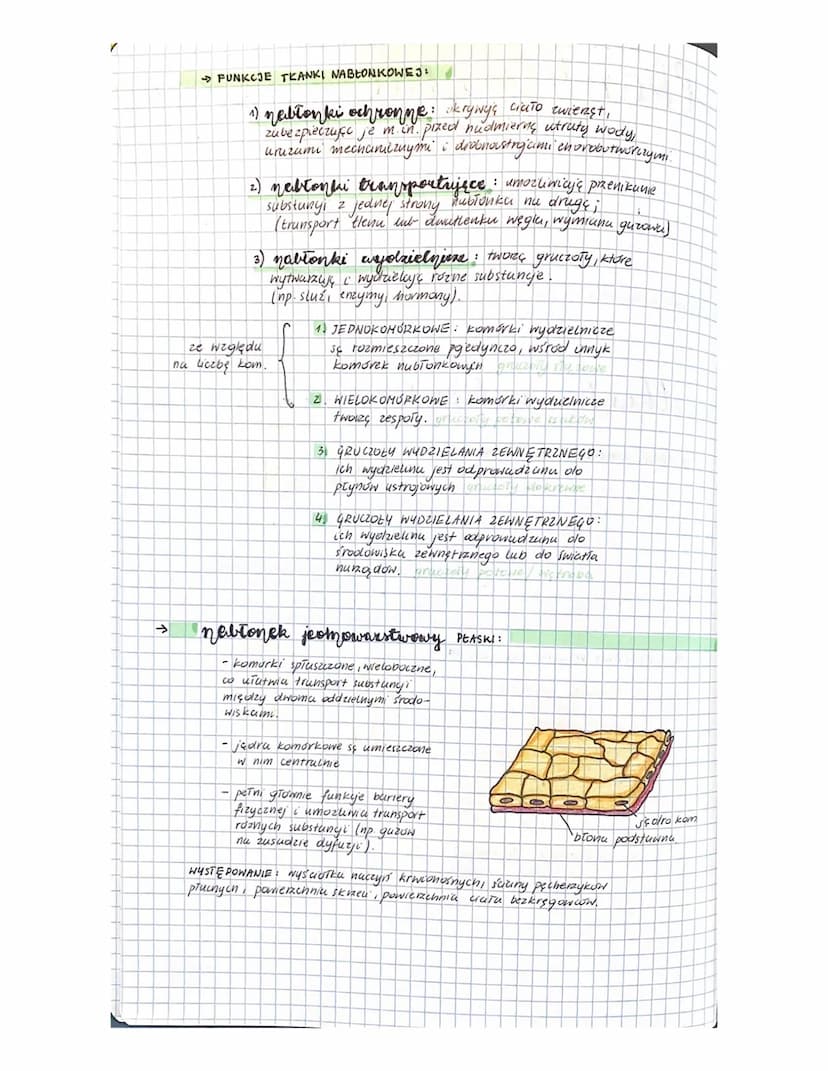 → FUNKCJE TKANKI NABŁONKOWEJ:
1) nabłonki ochronne: okrywają ciało zwierząt,
zabezpieczając je m.in. przed nadmierną utratą wody,
urazami mechanicznymi i drobnoustrojami chorobotwórczymi.
2) nabłonki transportujące: umożliwiają przenikanie
substancji z jednej strony nabłonka na drugą;
(transport tlenu lub dwutlenku węgla, wymiana gazowa)
3) nabłonki wydzielnicze: tworzą gruczoły, które
wytwarzają i wydzielają różne substancje.
(np. śluz, enzymy, hormony).
ze względu
na liczbę kom.
1. JEDNOKOMÓRKOWE: komórki wydzielnicze
są rozmieszczone pojedynczo, wśród innyk
komórek nabłonkowych gruczoły śluzowe
2. WIELOKOMÓRKOWE: komórki wydzielnicze
tworzą zespoły. gruczoły potowe ssaków
3. GRUCZOŁY WYDZIELANIA ZEWNĘTRZNEGO:
ich wydzielina jest odprowadzana do
płynów ustrojowych gruczoły dokrewne
4. GRUCZOŁY WYDZIELANIA ZEWNĘTRZNEGO:
ich wydzielina jest odprowadzana do
środowiska zewnętrznego lub do światła
narządów. gruczoły potowe/wątroba
→ nabłonek jednowarstwowy PŁASKI:
- komórki spłaszczone, wieloboczne,
co ułatwia transport substancji
między dwoma oddzielnymi środo-
wiskami.
- jądra komórkowe są umieszczone
w nim centralnie
- pełni głównie funkcje bariery
fizycznej i umożliwia transport
różnych substancji (np. gazów
na zasadzie dyfuzji).
jądro kom.
błona podstawna
WYSTĘPOWANIE: wyściółka naczyń krwionośnych, ściany pęcherzyków
płucnych, powierzchnia skrzeli, powierzchnia ciała bezkręgowców.